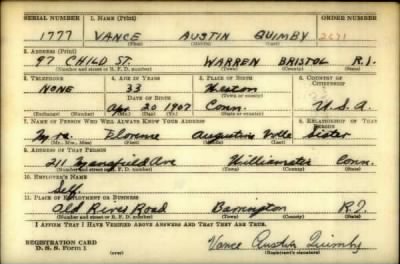 SERIAL NUMBER 1. NAME (Print) ORDER NUMBER
1777 VANCE AUSTIN QUIMBY 2671
(First) (Middle) (Last)
2. ADDRESS (Print)
97 CHILD ST. WARREN BRISTOL R.I.
(Number and street or R. F. D. number) (Town) (County) (State)
3. TELEPHONE 4. AGE IN YEARS 5. PLACE OF BIRTH 6. COUNTRY OF CITIZENSHIP
NONE 33 Weston
DATE OF BIRTH (Town or county)
Apr. 20 1907 Conn. U.S.A.
(Exchange) (Number) (Mo.) (Day) (Yr.) (State or country)
7. NAME OF PERSON WHO WILL ALWAYS KNOW YOUR ADDRESS 8. RELATIONSHIP OF THAT PERSON
Mrs. Florence Sister
(Mr., Mrs., Miss) (First) (Middle) (Last)
9. ADDRESS OF THAT PERSON
211 Mansfield Ave Willimantic Conn.
(Number and street or R. F. D. number) (Town) (County) (State)
10. EMPLOYER'S NAME
Self
11. PLACE OF EMPLOYMENT OR BUSINESS
Old River Road Barrington R.I.
(Number and street or R. F. D. number) (Town) (County) (State)
I AFFIRM THAT I HAVE VERIFIED ABOVE ANSWERS AND THAT THEY ARE TRUE.
REGISTRATION CARD
D. S. S. Form 1 Vance Austin Quimby
(Registrant's signature)